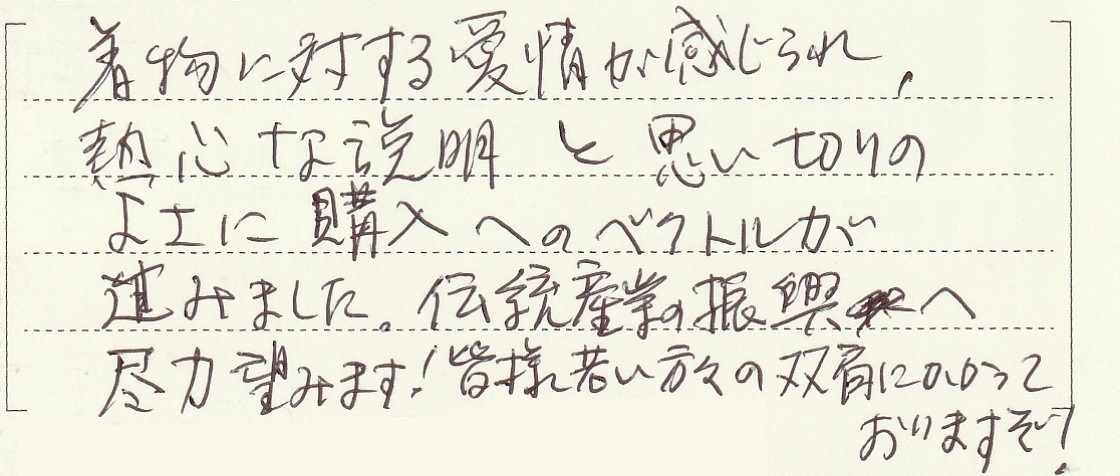 着物に対する愛情が感じられ、
熱心な説明と思い切りの
よさに購入へのベクトルが
進みました。伝統産業の振興へ
尽力望みます!皆様若い方々の双肩にかかって
おりますぞ!